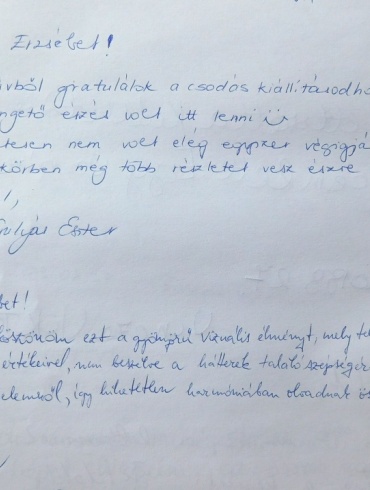 Erzsébet!
ívből gratulálok a csodás kiállításodho
ngető érzés volt itt lenni
tesen nem volt elég egyszer végigjá
körben még több részletet vesz észre
Gulyás Eszter
bet!
köszönöm ezt a gyönyörű vizuális élményt, mely te
értékeivel, nem beszélve a hátterek találó szépségér
elemről, így hihetetlen harmóniában olvadnak ös